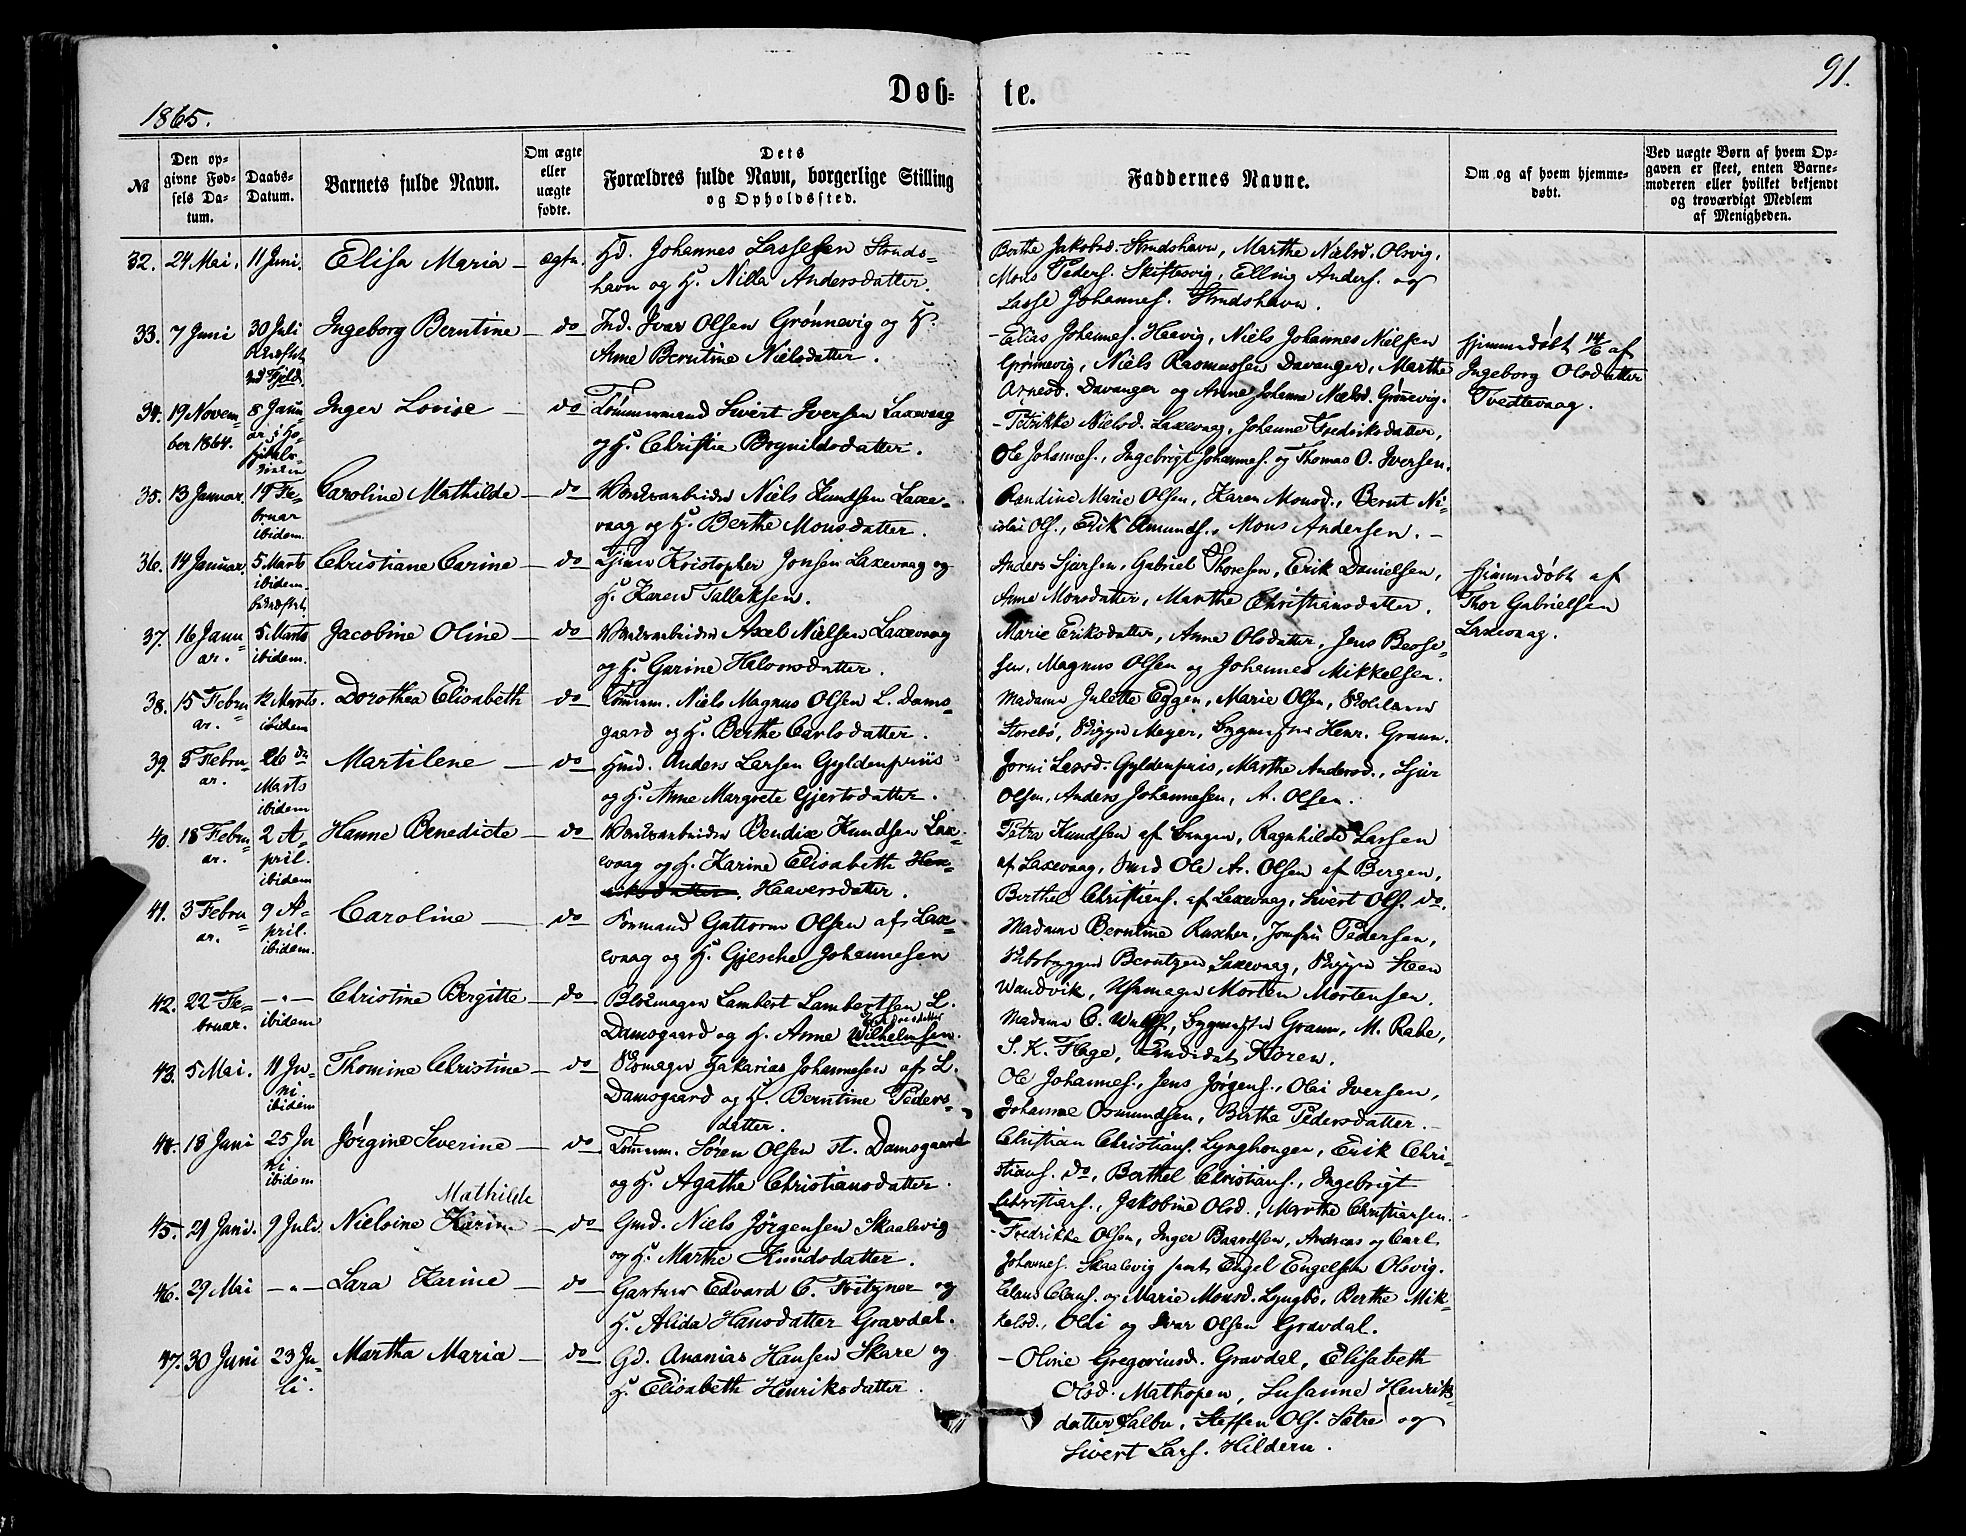 Døb-
te.
91.
1865.
№
Den op-
givne Fød-
sels Da-
tum.
Daabs-
Datum.
Barnets fulde Navn.
Om ægte
eller
uægte
fødte.
Dets
Forældres fulde Navn, borgerlige Stilling
og Opholdssted.
Faddernes Navne.
Om og af hvem hjemme-
døbt.
Ved uægte Børn af hvem Op-
gaven er skeet, enten Barne-
moderen eller hvilket bekjendt
og troværdigt Medlem
af Menigheden.
32. 24 Mai. 11 Juni. Elisa Maria — ægte. Hd. Johannes Lassesen Struds-
havn og H. Nilla Andersdatter.
Berthe Jakobsd. Strudshavn, Marthe Nielsd. Olsvig,
Mons Peders. Skiftesvig, Elling Anders. og
Lasse Johannes. Strudshavn.
33. 7 Juni 30 Juli
ved Fjeld. Ingeborg Berntine — do Ivar Olsen Grønnevig og H.
Anne Berntine Nielsdatter.
- Elias Johannes. Heevig, Niels Johannes Nielsen
Grønnevig, Niels Rasmussen Davanger, Marthe
Arnesd. Davanger og Anne Johanne Nielsd. Grønevig.
Hjemmedøbt 14/6 af
Ingeborg Olsdatter
Tvedtevaag.
34. 19 Novem-
ber 1864. 8 Janu-
ar i Ho- Inger Lovise — do Tømmermand Sivert Iversen Laxevaag
og H. Christie Brynildsdatter.
- Petrikke Nielsd. Laxevaag, Johanne Fredriksdatter,
Ole Johannes., Ingebrigt Johannes. og Thomas O. Iversen.
35. 13 Januar. 19 Fe-
bruar
ibidem. Caroline Mathilde — do Værksarbeider Niels Knudsen Laxe-
vaag og H. Berthe Monsdatter.
Randine Marie Olsen, Karen Monsd., Bernt Ni-
colai Ols., Erik Amunds., Mons Andersen. —
36. 14 Januar. 5 Marts
ibidem
bekræftet. Christiane Carine — do Kristopher Jonsen Laxevaag og
H. Karen Tallaksen.
Anders Sjursen, Gabriel Thoresen, Erik Danielsen,
Anne Monsdatter, Marthe Christiansdatter.
Hjemmedøbt af
Thor Gabrielsen
Laxevaag.
37. 16 Janu-
ar. 5 Marts
ibidem. Jacobine Oline — do Værksarbeider Axel Nielsen Laxevaag
og H. Gurine Halvorsdatter.
Marie Eriksdatter, Anne Olsdatter, Jens Beose-
sen, Magnus Olsen og Johannes Mikkelsen.
38. 15 Febru-
ar. 12 Marts.
ibidem Dorothea Elisabeth do Tømmm. Niels Magnus Olsen L. Dams-
gaard og H. Berthe Carlsdatter.
Madame Julette Eggen, Marie Olsen,
Storebø, Meyer, Bygmester Henr. Graun.
39. 5 Febru-
ar. 26 de
Marts
ibidem Martilene — do Hmd. Anders Larsen Gyldenpriis
og H. Anne Margrete Gjertsdatter.
Larsd. Gyldenpris, Marthe Andersd., Sjur
Olsen, Anders Johannesen, A. Olsen.
40. 18 Febru-
ar. 2 A-
pril.
ibidem Hanne Benedicte — do Værksarbeider Bendix Knudsen Lax-
evaag og H. Karine Elisabeth Hen-
riksdatter. Haaversdatter.
Petra Knudsen af Bergen, Ragnhilde Larsen
af Laxevaag, Smed Ole A. Olsen af Bergen,
Berthel Christians. af Laxevaag, Sivert Ols. do.
41. 3 Febru-
ar. 9 A-
pril.
ibidem. Caroline — do Formand Guttorm Olsen af Lax-
evaag og H. Gjesche Johannesen
Madame Berntine Ruscher, Jomfru Pedersen,
Berntzen Laxevaag, Steen
Wandvik, Uhrmager Morten Mortensen.
42. 22 Fe-
bruar. — " —
ibidem Christine Bergitte — do Blokmager Lambert Lambertsen L.
Damsgaard og H. Anne Wilhelmsen.
Madame C. Wulff, Bygmester Graun, M. Rabe,
S. K. Flage, Candidat Koren.
43. 5 Mai. 11 Ju-
ni.
ibidem Thomine Christine — do Zakarias Johannesen af L.
Damsgaard og H. Berntine Peders-
datter.
Ole Johannes., Jens Jørgens., Olai Iversen,
Johanne Osmundsen, Birthe Pedersdatter. —
44. 18 Juni 25 Ju-
ni.
ibidem Jørgine Severine — do Tømmm. Søren Olsen st. Damsgaard
og H. Agathe Christiansdatter.
Christian Christians. Lynghougen, Erik Chri-
stians. do, Berthel Christians., Ingebrigt
Christians., Jakobine Olsd., Marthe Christiansen.
45. 21 Juni. 9 Juli Nielsine Karine Mathilde — do Gmd. Niels Jørgensen Skaalevig
og H. Marthe Knudsdatter.
- Fredrikke Olsen, Inger Baardsen, Andreas og Carl
Johannes. Skaalevig samt Engel Engelsen Olsvig.
46. 29 Mai — " — Lara Karine — do Gartner Edvard C. Fritzner og
H. Alida Hansdatter Gravdal.
Claus Claus. og Marie Monsd. Lyngbø, Berthe Mik-
kelsd., Oldi og Ivar Olsen Gravdal.
47. 30 Juni 23 Ju-
li. Martha Maria — do Gd. Ananias Hansen Skare og
H. Elisabeth Henriksdatter.
- Oline Gregoriusd. Gravdal, Elisabeth
Olsd. Mathopen, Susanne Henriks-
datter Salbu, Steffen Ols. Sætre og
Sivert Lars. Hilderen.